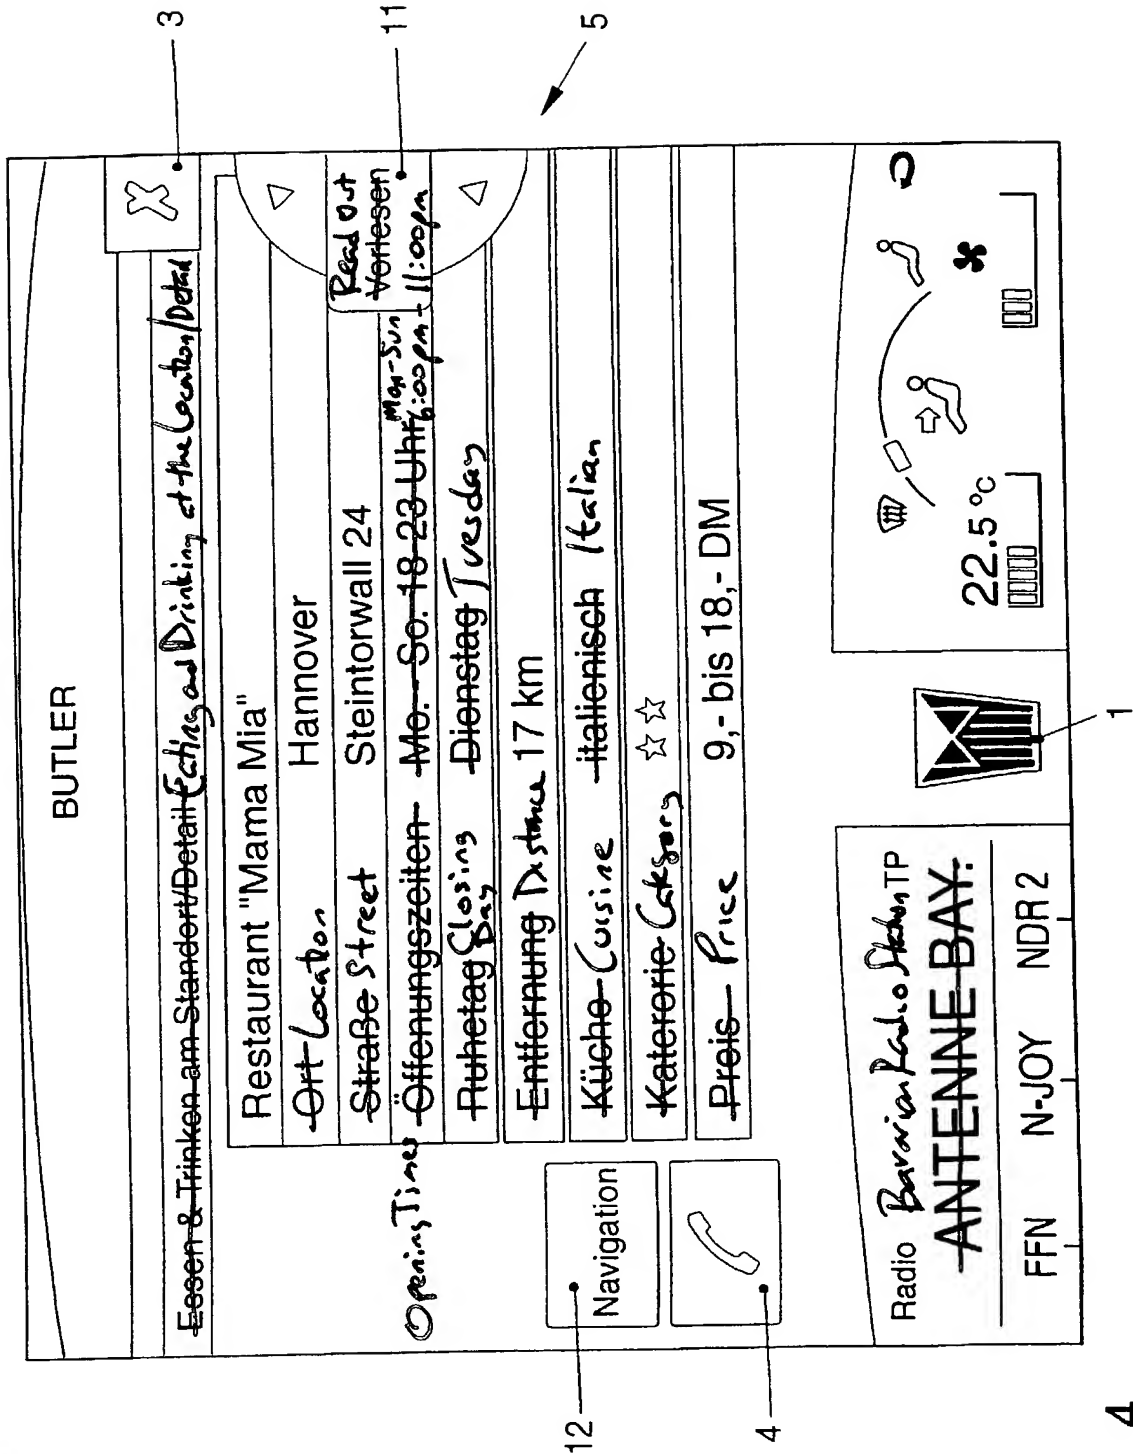 BUTLER
3
Essen & Trinken am Standort/Detail Eating and Drinking at the Location/Detail
X
Restaurant "Mama Mia"
Ort Location Hannover
11
Read Out
Vorlesen
Straße Street Steintorwall 24
Opening Times Öffenungszeiten Mo. - So. 18-23 Uhr Mon-Sun 6:00pm - 11:00pm
Ruhetag Closing Day Dienstag Tuesday
5
Entfernung Distance 17 km
12
Navigation
Küche Cuisine italienisch Italian
Katerorie Category ☆☆
4
Preis Price 9,- bis 18,- DM
Radio Bavarian Radio Station TP
ANTENNE BAY.
FFN N-JOY NDR 2
1
22.5 °C
4